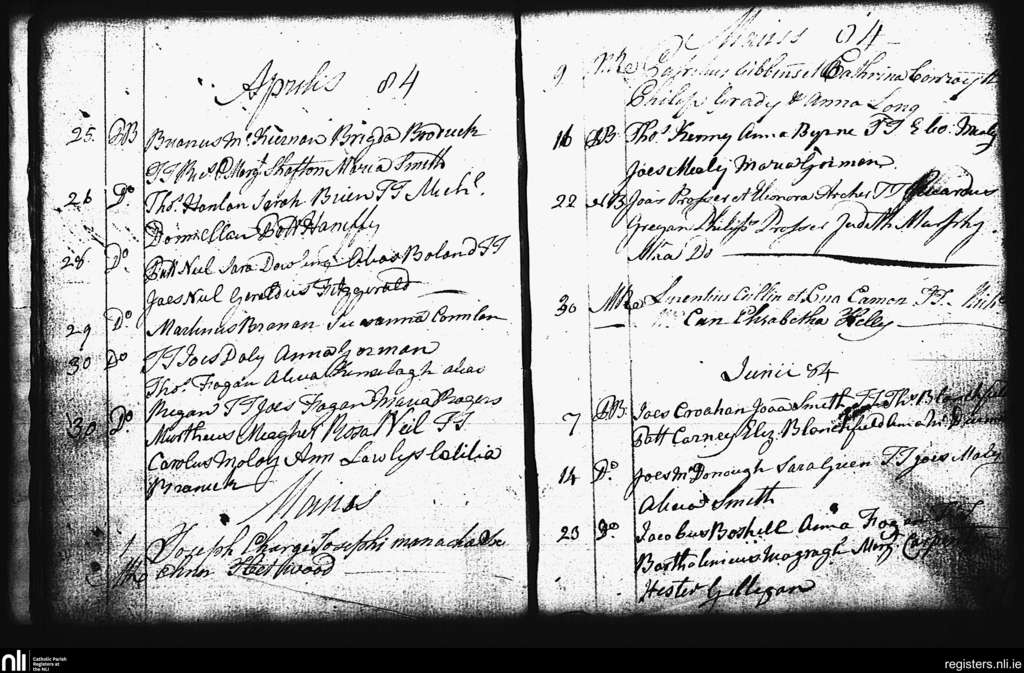 Aprilis 84
25 BB Brianus McKiernan Brigda Broduck
TT Margt Shafton Maria Smith
26 Do Thos Hanlan Sarah Brien TT Michl
Domiellan Patt Haniffy
28 Do Patt Neil Sara Dowling alias Boland TT
Joes Neil Geraldus Fitzgerald
29 Do Martinus Branan Susanna Connlan
30 Do TT Joes Daly Anna Gorman
Thos Fagan Alicia alias
Megan TT Joes Fagan Maria Rogers
30 Do Mattheus Meagher Rosa Neil TT
Carolus Moloy Ann Lawlys Cecilia
Branick
Maius
1 Joseph
Fleetwood
Maius 84
9 Gibbins et Cathrina Conroy
Philip Grady & Anna Long
16 BB Thos Kenny Anna Byrne TT Mealy
Joes Mealy Maria Gorman
22 BB Joas Prosser et Eleonora Archer TT
Gregan Philip Prosser Judith Murphy
Mria Do
30 MRe Lurentius Cullin et Eva Eamon TT
Elisabetha Heley
Junii 84
7 BB Joes Croahan Joaa Smith TT Thos
Patt Carney Eliz Blanchfield
14 Do Joes McDonough Sara Green TT Joes Maly
Alicia Smith
23 Do Jacobus Boshell Anna Fogan
Bartholimeus Magragh Mary
Hester Gilligan
nli
Catholic Parish
Registers at
the NLI
registers.nli.ie